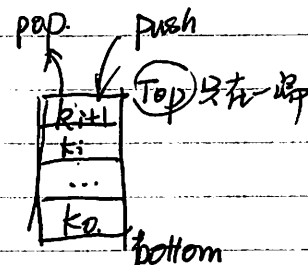 pop. push
Top 只在一端
ki+1
ki
...
k0
bottom